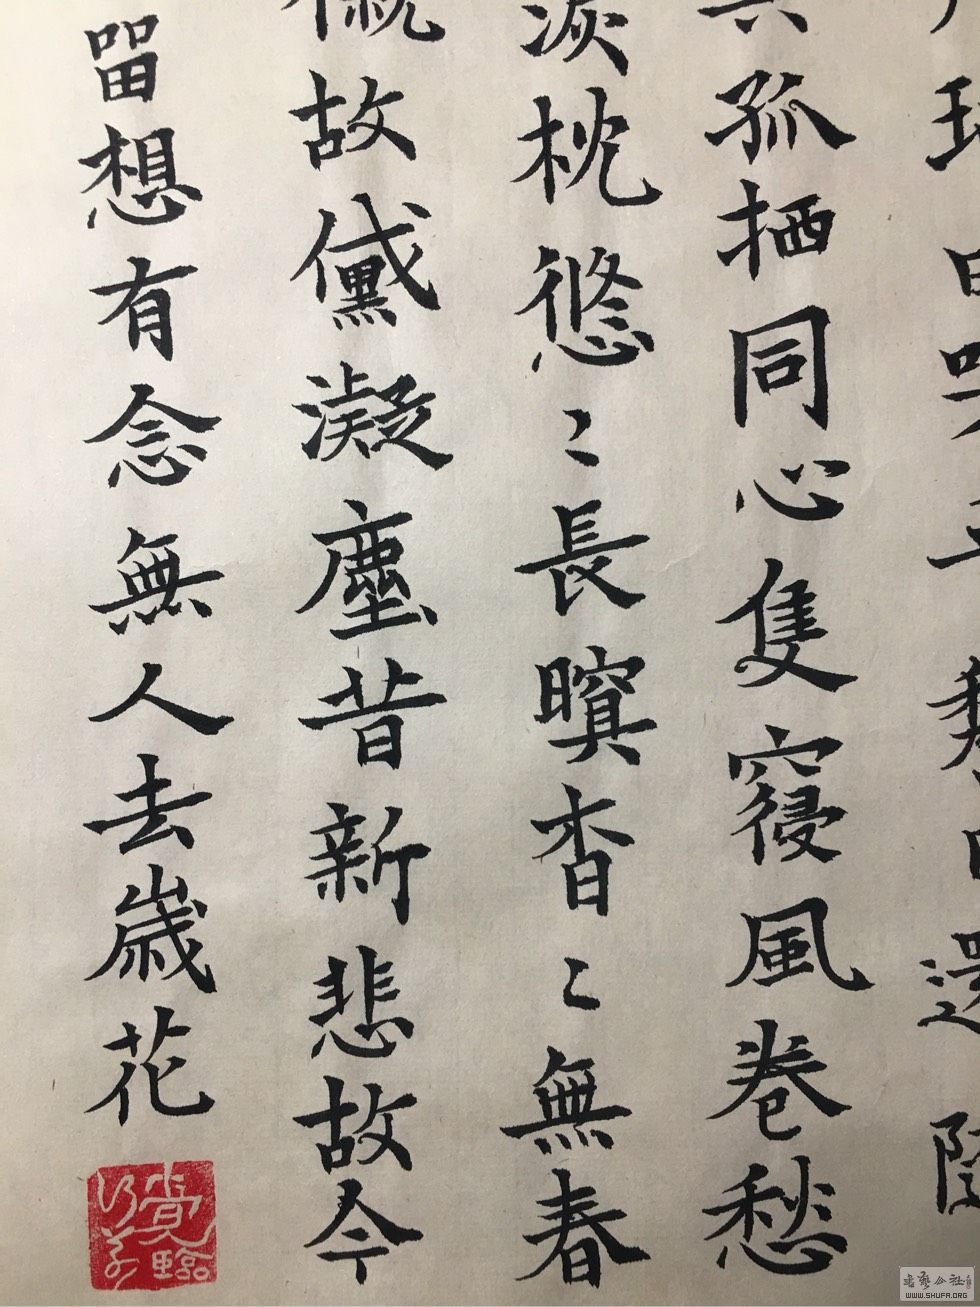 孤栖同心隻寢風卷愁
淚枕悠々長瞑杳々無春
故黛凝塵昔新悲故今
留想有念無人去歲花
WWW.SHUFA.ORG